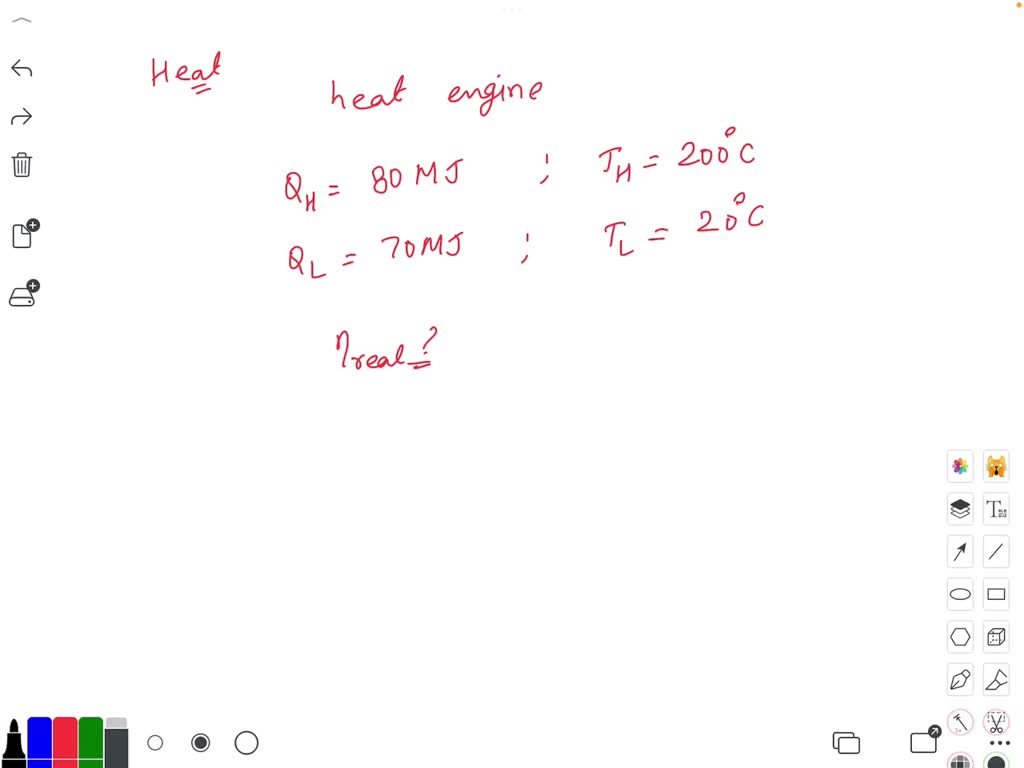 Heat
heat engine
Q_H = 80 MJ ; T_H = 200°C
Q_L = 70MJ ; T_L = 20°C
ηreal ?